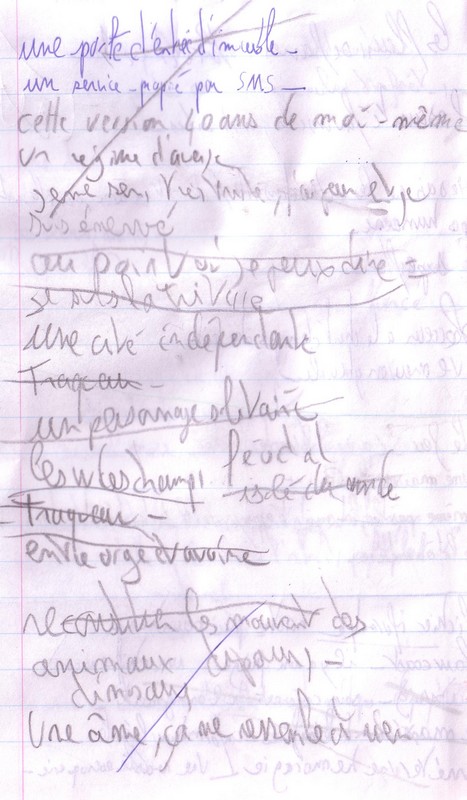 une porte d'entrée d'immeuble -
un service - payé par SMS -
cette version 40 ans de moi-même
un régime d'avance
je me sens très, j'ai peur et je
suis énervé
au point où je peux dire =
je suis la
une cité indépendante
Traqueur -
un personnage solitaire
les champs féodal
isolé du monde
Traqueur -
entre orge et avoine
les mouvements des
animaux disparus -
dinosaures
Une âme, ça ne ressemble à rien